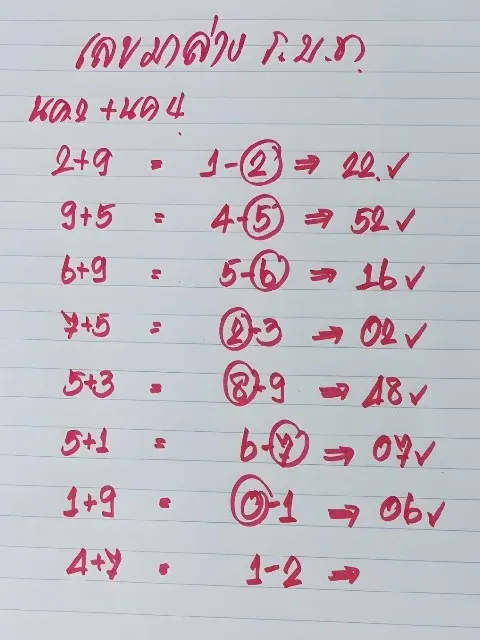 เลขมาล่าง ร.บ.ชา.
นค.2 + นค 4
2+9 = 1-2 ⇒ 22 ✓
9+5 = 4-5 ⇒ 52 ✓
6+9 = 5-6 ⇒ 16 ✓
7+5 = 2-3 → 02 ✓
5+3 = 8-9 → 48 ✓
5+1 = 6-7 ⇒ 07 ✓
1+9 = 0-1 → 06 ✓
4+7 = 1-2 →